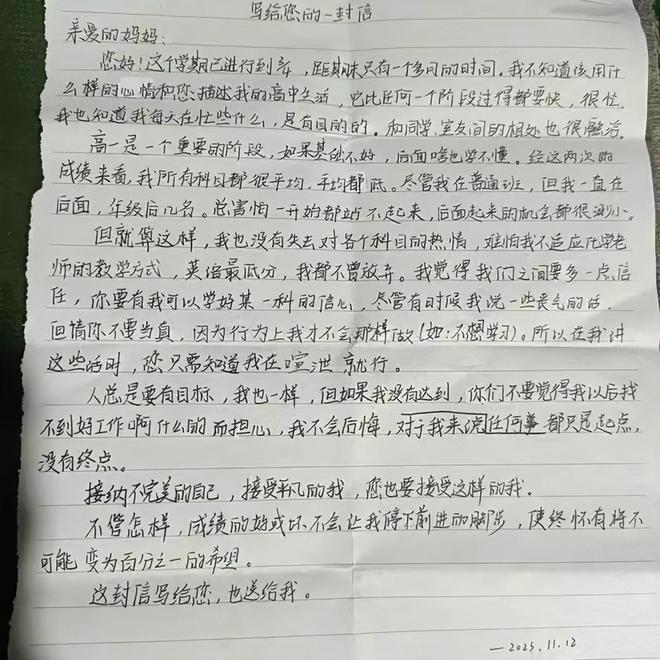 写给您的一封信
亲爱的妈妈:
您好!这个学期已进行到半,距期末只有一个多月的时间。我不知道该用什
么样的心情和您描述我的高中生活,它比任何一个阶段过得都要快,很忙。
我也知道我每天在忙些什么,是有目的的。和同学,室友间的相处也很融洽。
高一是一个重要的阶段,如果基础不好,后面啥也学不懂。经这两次的
成绩来看,我所有科目都很平均,平均都低。尽管我在普通班,但我一直在
后面,年级后几名。总害怕一开始都站不起来,后面起来的机会都很渺小。
但就算这样,我也没有失去对各个科目的热情,难怕我不适应化学老
师的教学方式,英语最低分,我都不曾放弃。我觉得我们之间要多一点信
任,你要有我可以学好某一科的信心,尽管有时候我说一些丧气的话,
但请你不要当真,因为行为上我才不会那样做(如:不想学习)。所以在我讲
这些话时,您只需知道我在喧泄就行。
人总是要有目标,我也一样,但如果我没有达到,你们不要觉得我以后找
不到好工作啊什么的而担心,我不会后悔,对于我来说任何事都只是起点,
没有终点。
接纳不完美的自己,接受平凡的我,您也要接受这样的我。
不管怎样,成绩的好或坏不会让我停下前进的脚步,使终怀有将不
可能变为百分之一的希望。
这封信写给您,也送给我。
—2023.11.12